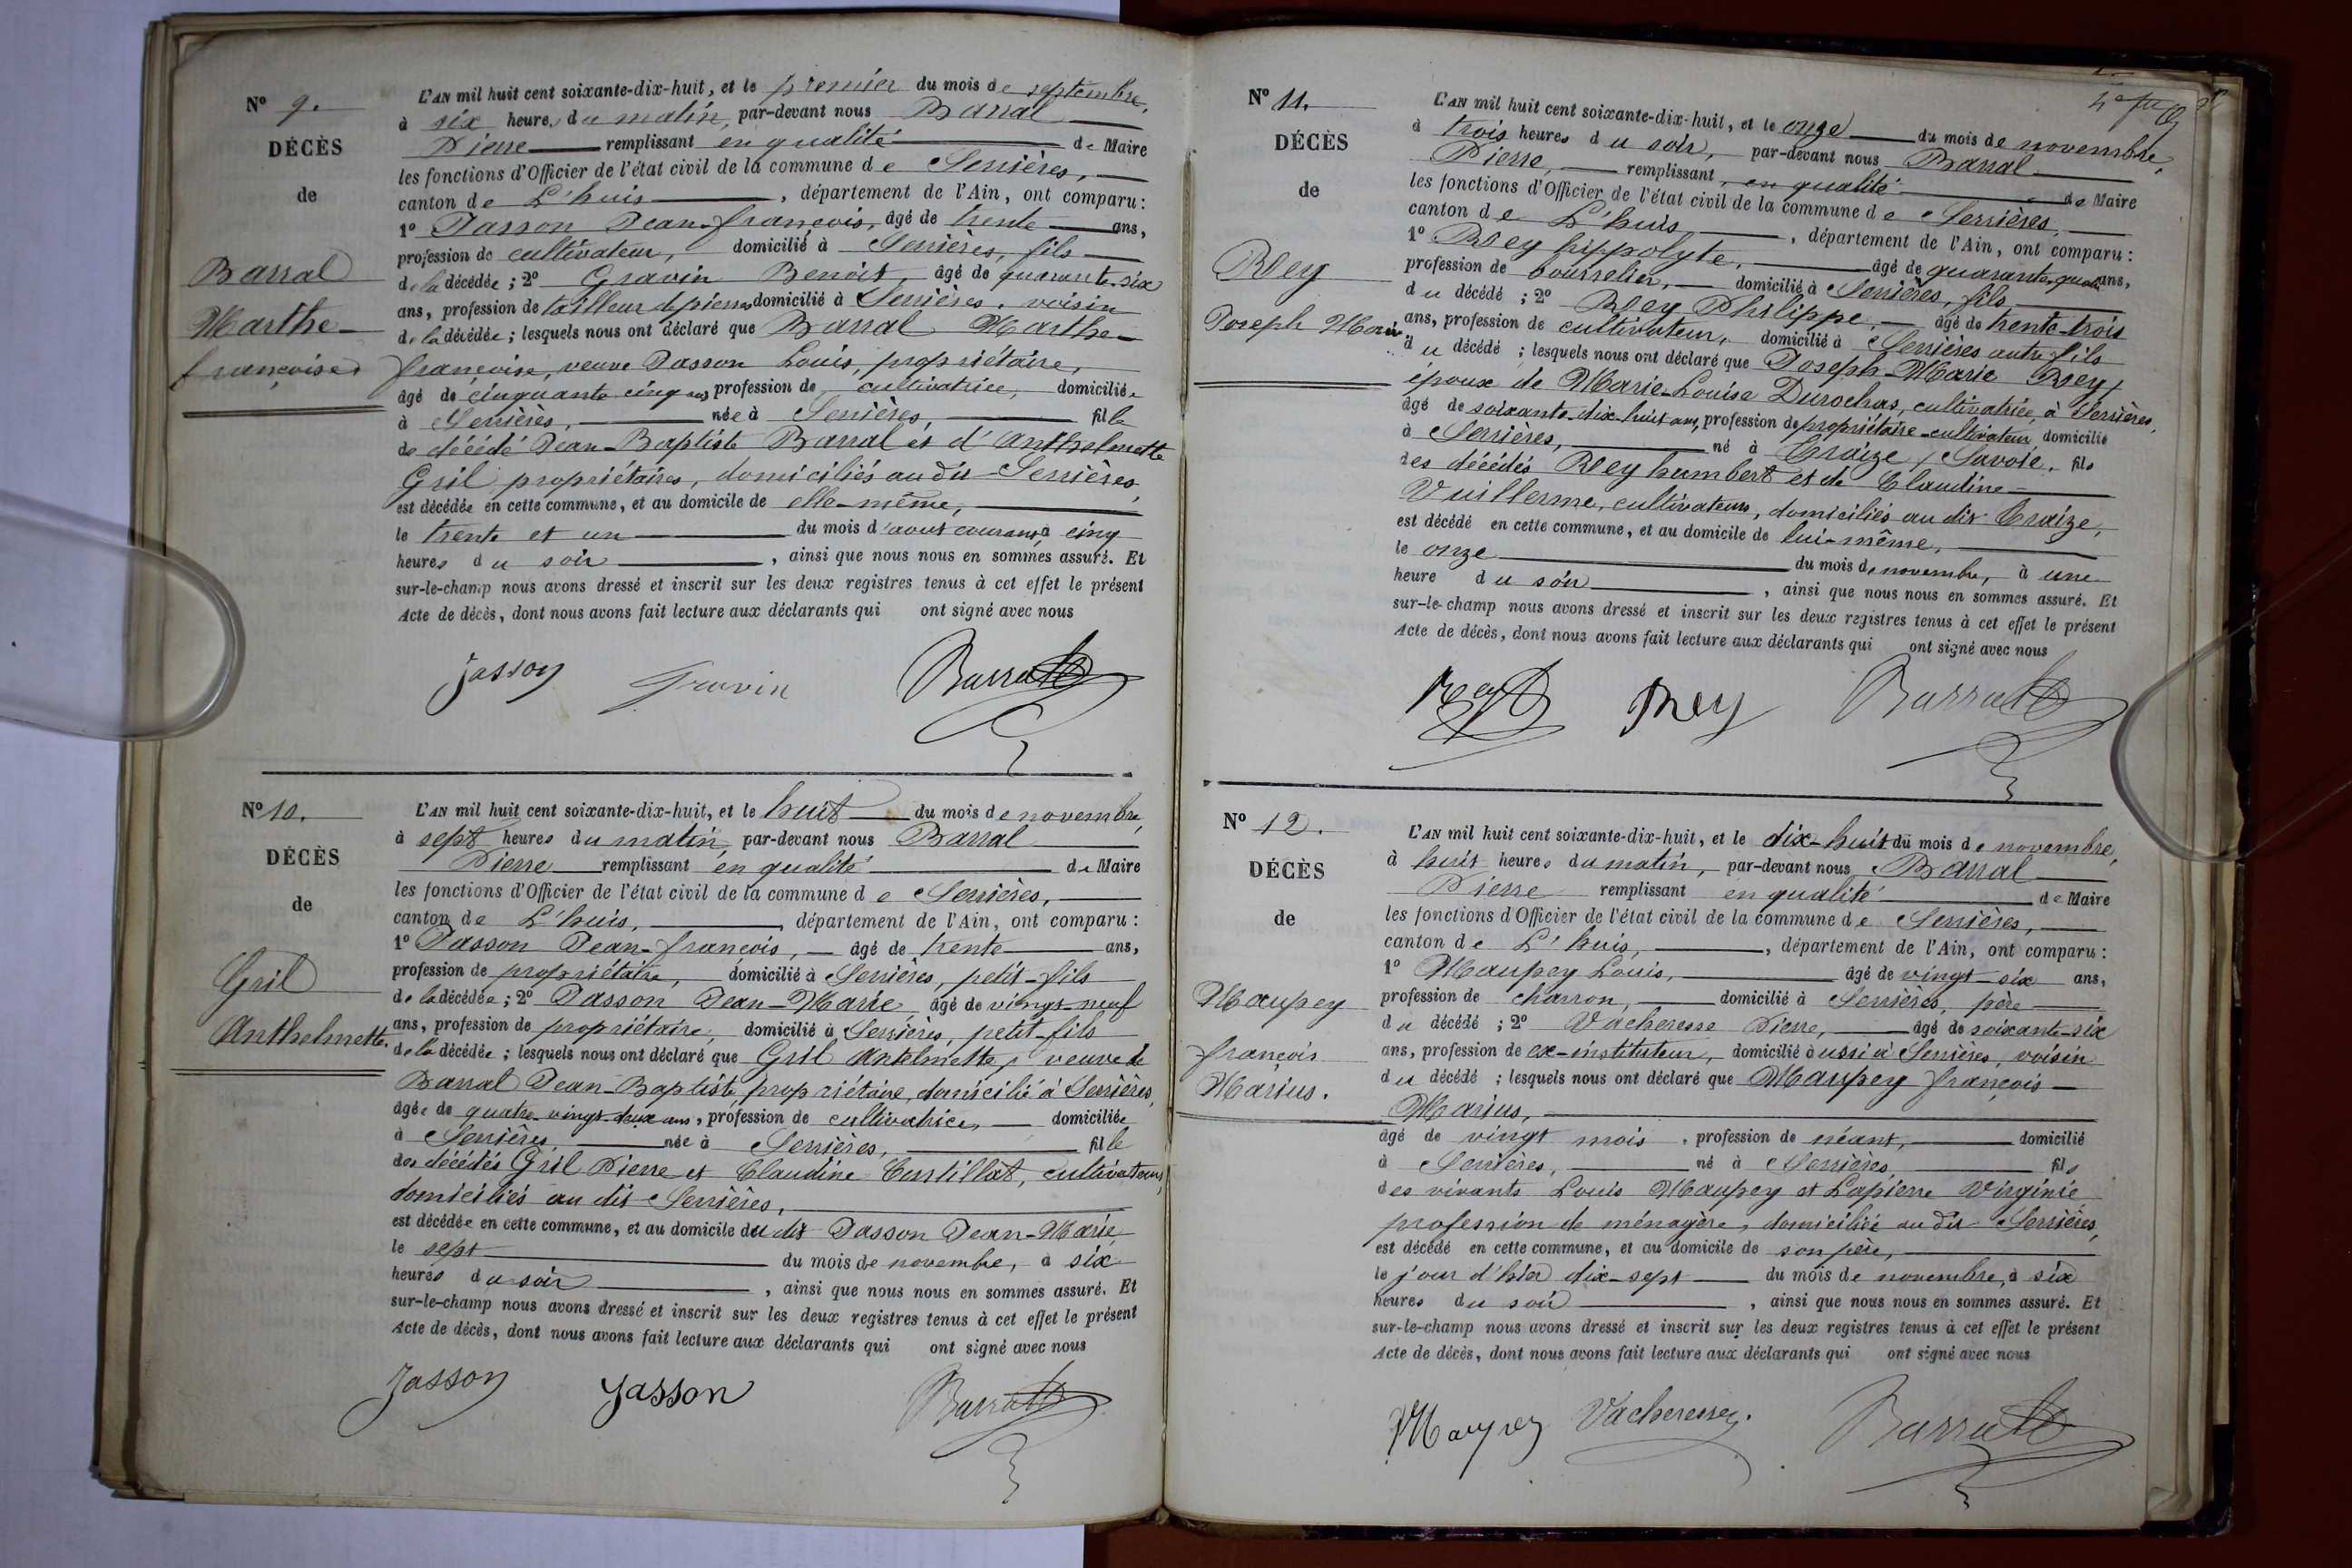 N° 9.
DÉCÈS
de
Barral
Marthe-
françoise
L'AN mil huit cent soixante-dix-huit, et le premier du mois de septembre,
à six heures du matin, par-devant nous Barral
Pierre remplissant en qualité de Maire
les fonctions d'Officier de l'état civil de la commune de Serrières,
canton de L'huis, département de l'Ain, ont comparu:
1° Jasson Jean-françois, âgé de trente ans,
profession de cultivateur, domicilié à Serrières, fils
de la décédée; 2° Gravin Benoit, âgé de quarante-six
ans, profession de tailleur de pierres domicilié à Serrières, voisin
de la décédée; lesquels nous ont déclaré que Barral Marthe-
françoise, veuve Jasson Louis, propriétaire,
âgé de cinquante cinq ans profession de cultivatrice, domiciliée
à Serrières, née à Serrières, fille
de décédé Jean-Baptiste Barral et d'Anthelmette
Gril propriétaires, domiciliés au dit Serrières,
est décédée en cette commune, et au domicile de elle-même,
le trente et un du mois d'aout courant à cinq
heures du soir, ainsi que nous nous en sommes assuré. Et
sur-le-champ nous avons dressé et inscrit sur les deux registres tenus à cet effet le présent
Acte de décès, dont nous avons fait lecture aux déclarants qui ont signé avec nous
Jasson Gravin Barral
N° 10.
DÉCÈS
de
Gril
Anthelmette.
L'AN mil huit cent soixante-dix-huit, et le huit du mois de novembre,
à sept heures du matin, par-devant nous Barral
Pierre remplissant en qualité de Maire
les fonctions d'Officier de l'état civil de la commune de Serrières,
canton de L'huis, département de l'Ain, ont comparu:
1° Jasson Jean-françois, âgé de trente ans,
profession de propriétaire, domicilié à Serrières, petit-fils
de la décédée; 2° Jasson Jean-Marie, âgé de vingt-neuf
ans, profession de propriétaire, domicilié à Serrières, petit-fils
de la décédée; lesquels nous ont déclaré que Gril Antelmette, veuve de
Barral Jean-Baptiste, propriétaire, domicilié à Serrières,
âgée de quatre-vingt-deux ans, profession de cultivatrice, domiciliée
à Serrières, née à Serrières, fille
des décédés Gril Pierre et Claudine Curtillat, cultivateurs,
domiciliés au dit Serrières,
est décédée en cette commune, et au domicile du dit Jasson Jean-Marie,
le sept du mois de novembre, à six
heures du soir, ainsi que nous nous en sommes assuré. Et
sur-le-champ nous avons dressé et inscrit sur les deux registres tenus à cet effet le présent
Acte de décès, dont nous avons fait lecture aux déclarants qui ont signé avec nous
Jasson Jasson Barral
N° 11.
DÉCÈS
de
Rey
Joseph Marie
L'AN mil huit cent soixante-dix-huit, et le onze du mois de novembre,
à trois heures du soir, par-devant nous Barral
Pierre, remplissant, en qualité de Maire
les fonctions d'Officier de l'état civil de la commune de Serrières,
canton de L'huis, département de l'Ain, ont comparu:
1° Rey hippolyte, âgé de quarante-quatre ans,
profession de bourrelier, domicilié à Serrières, fils
du décédé; 2° Rey Philippe, âgé de trente-trois
ans, profession de cultivateur, domicilié à Serrières autre fils
du décédé; lesquels nous ont déclaré que Joseph-Marie Rey,
époux de Marie-Louise Durochas, cultivatrice, à Serrières,
âgé de soixante-dix-huit ans, profession de propriétaire-cultivateur, domicilié
à Serrières, né à Traize, Savoie, fils
des décédés Rey humbert et de Claudine
Vuillerme, cultivateurs, domiciliés au dit Traize,
est décédé en cette commune, et au domicile de lui-même,
le onze du mois de novembre, à une
heure du soir, ainsi que nous nous en sommes assuré. Et
sur-le-champ nous avons dressé et inscrit sur les deux registres tenus à cet effet le présent
Acte de décès, dont nous avons fait lecture aux déclarants qui ont signé avec nous
Rey Rey Barral
N° 12.
DÉCÈS
de
Maupey
françois
Marius.
L'AN mil huit cent soixante-dix-huit, et le dix-huit du mois de novembre,
à huit heures du matin, par-devant nous Barral
Pierre remplissant en qualité de Maire
les fonctions d'Officier de l'état civil de la commune de Serrières,
canton de L'huis, département de l'Ain, ont comparu:
1° Maupey Louis, âgé de vingt-six ans,
profession de charron, domicilié à Serrières, père
du décédé; 2° Vacheresse Pierre, âgé de soixante-six
ans, profession de ex-instituteur, domicilié aussi à Serrières, voisin
du décédé; lesquels nous ont déclaré que Maupey françois-
Marius,
âgé de vingt mois, profession de néant, domicilié
à Serrières, né à Serrières, fils
des vivants Louis Maupey et Lapierre Virginie
profession de ménagère, domiciliés au dit Serrières,
est décédé en cette commune, et au domicile de son père,
le jour d'hier dix-sept du mois de novembre, à six
heures du soir, ainsi que nous nous en sommes assuré. Et
sur-le-champ nous avons dressé et inscrit sur les deux registres tenus à cet effet le présent
Acte de décès, dont nous avons fait lecture aux déclarants qui ont signé avec nous
Maupey Vacheresse. Barral